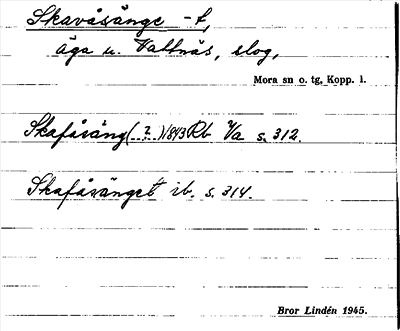 Skavåsänge -t,
äga u. Vattnäs, slog,
Mora sn o. tg, Kopp. l.
Skafåsäng(..?..) 1843 Rb Va s. 312.
Skafåsänget ib. s. 314.
Bror Lindén 1945.